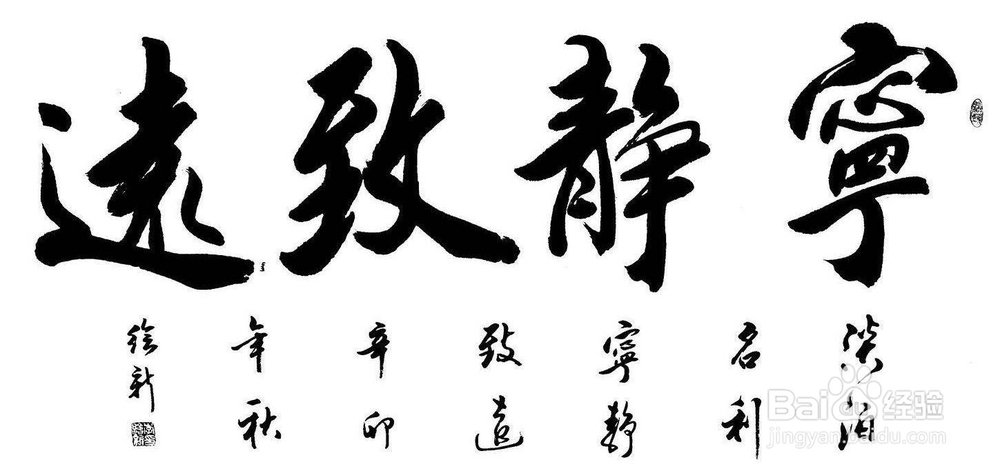 寧静致遠
淡泊
名利
寧静
致遠
辛卯
年秋
徐新
Baidu经验
jingyan.baidu.com